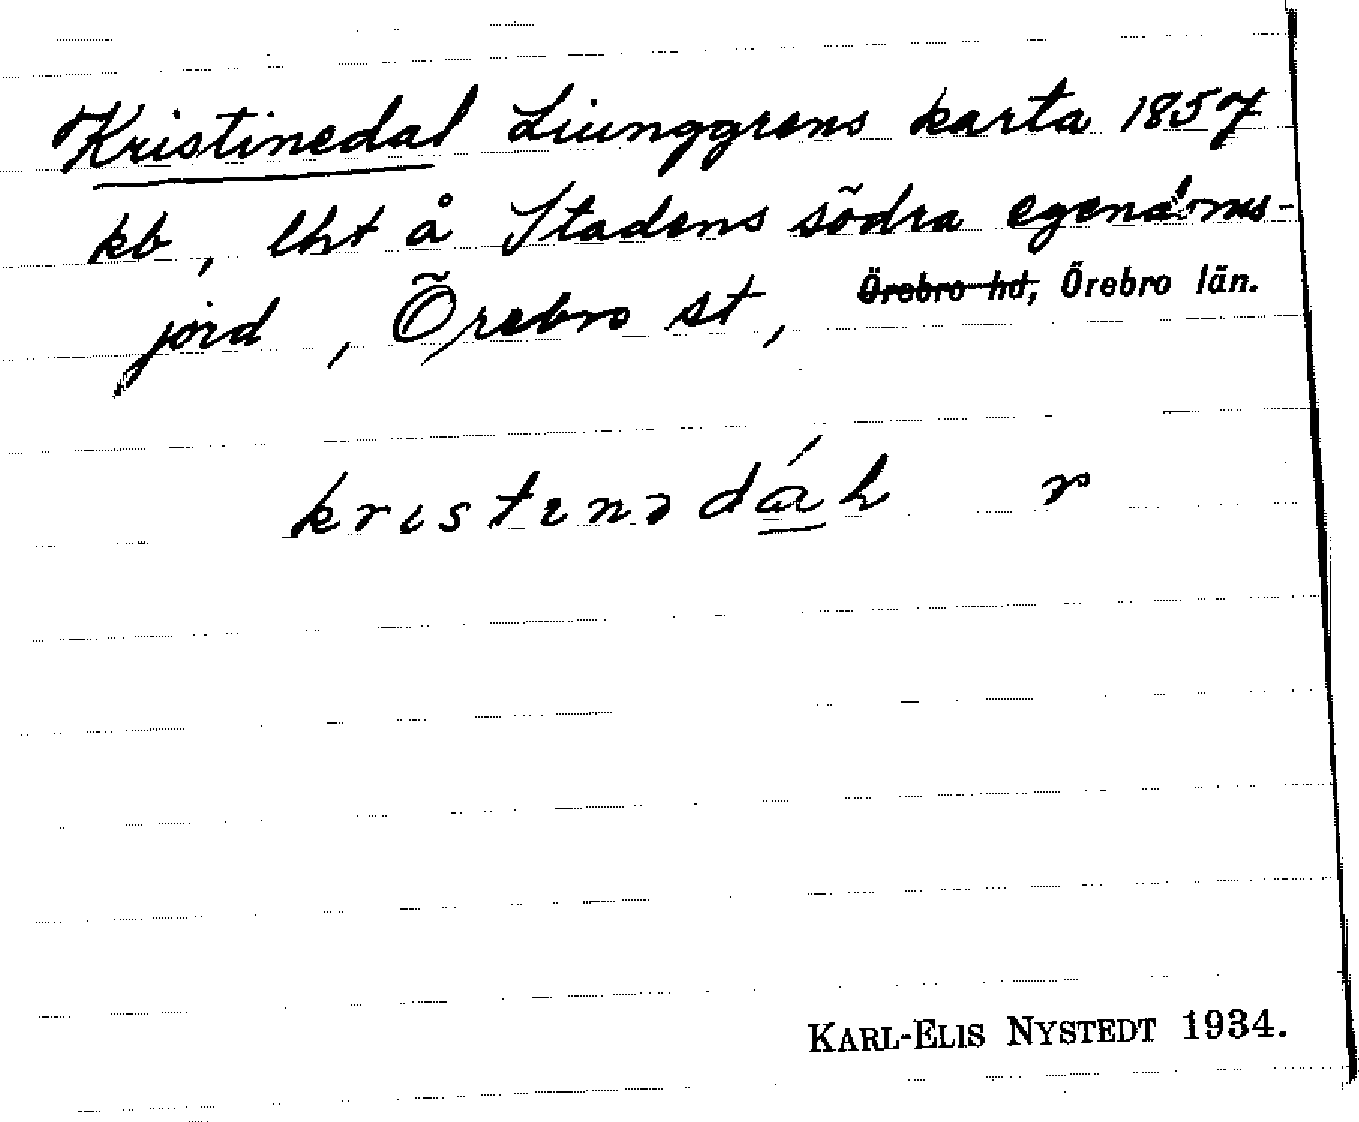 Kristinedal Liunggrens karta 1857
kb, lht å Stadens södra egendoms-
jord, Örebro st, Örebro hd, Örebro län.
kristinədáL r
KARL-ELIS NYSTEDT 1934.